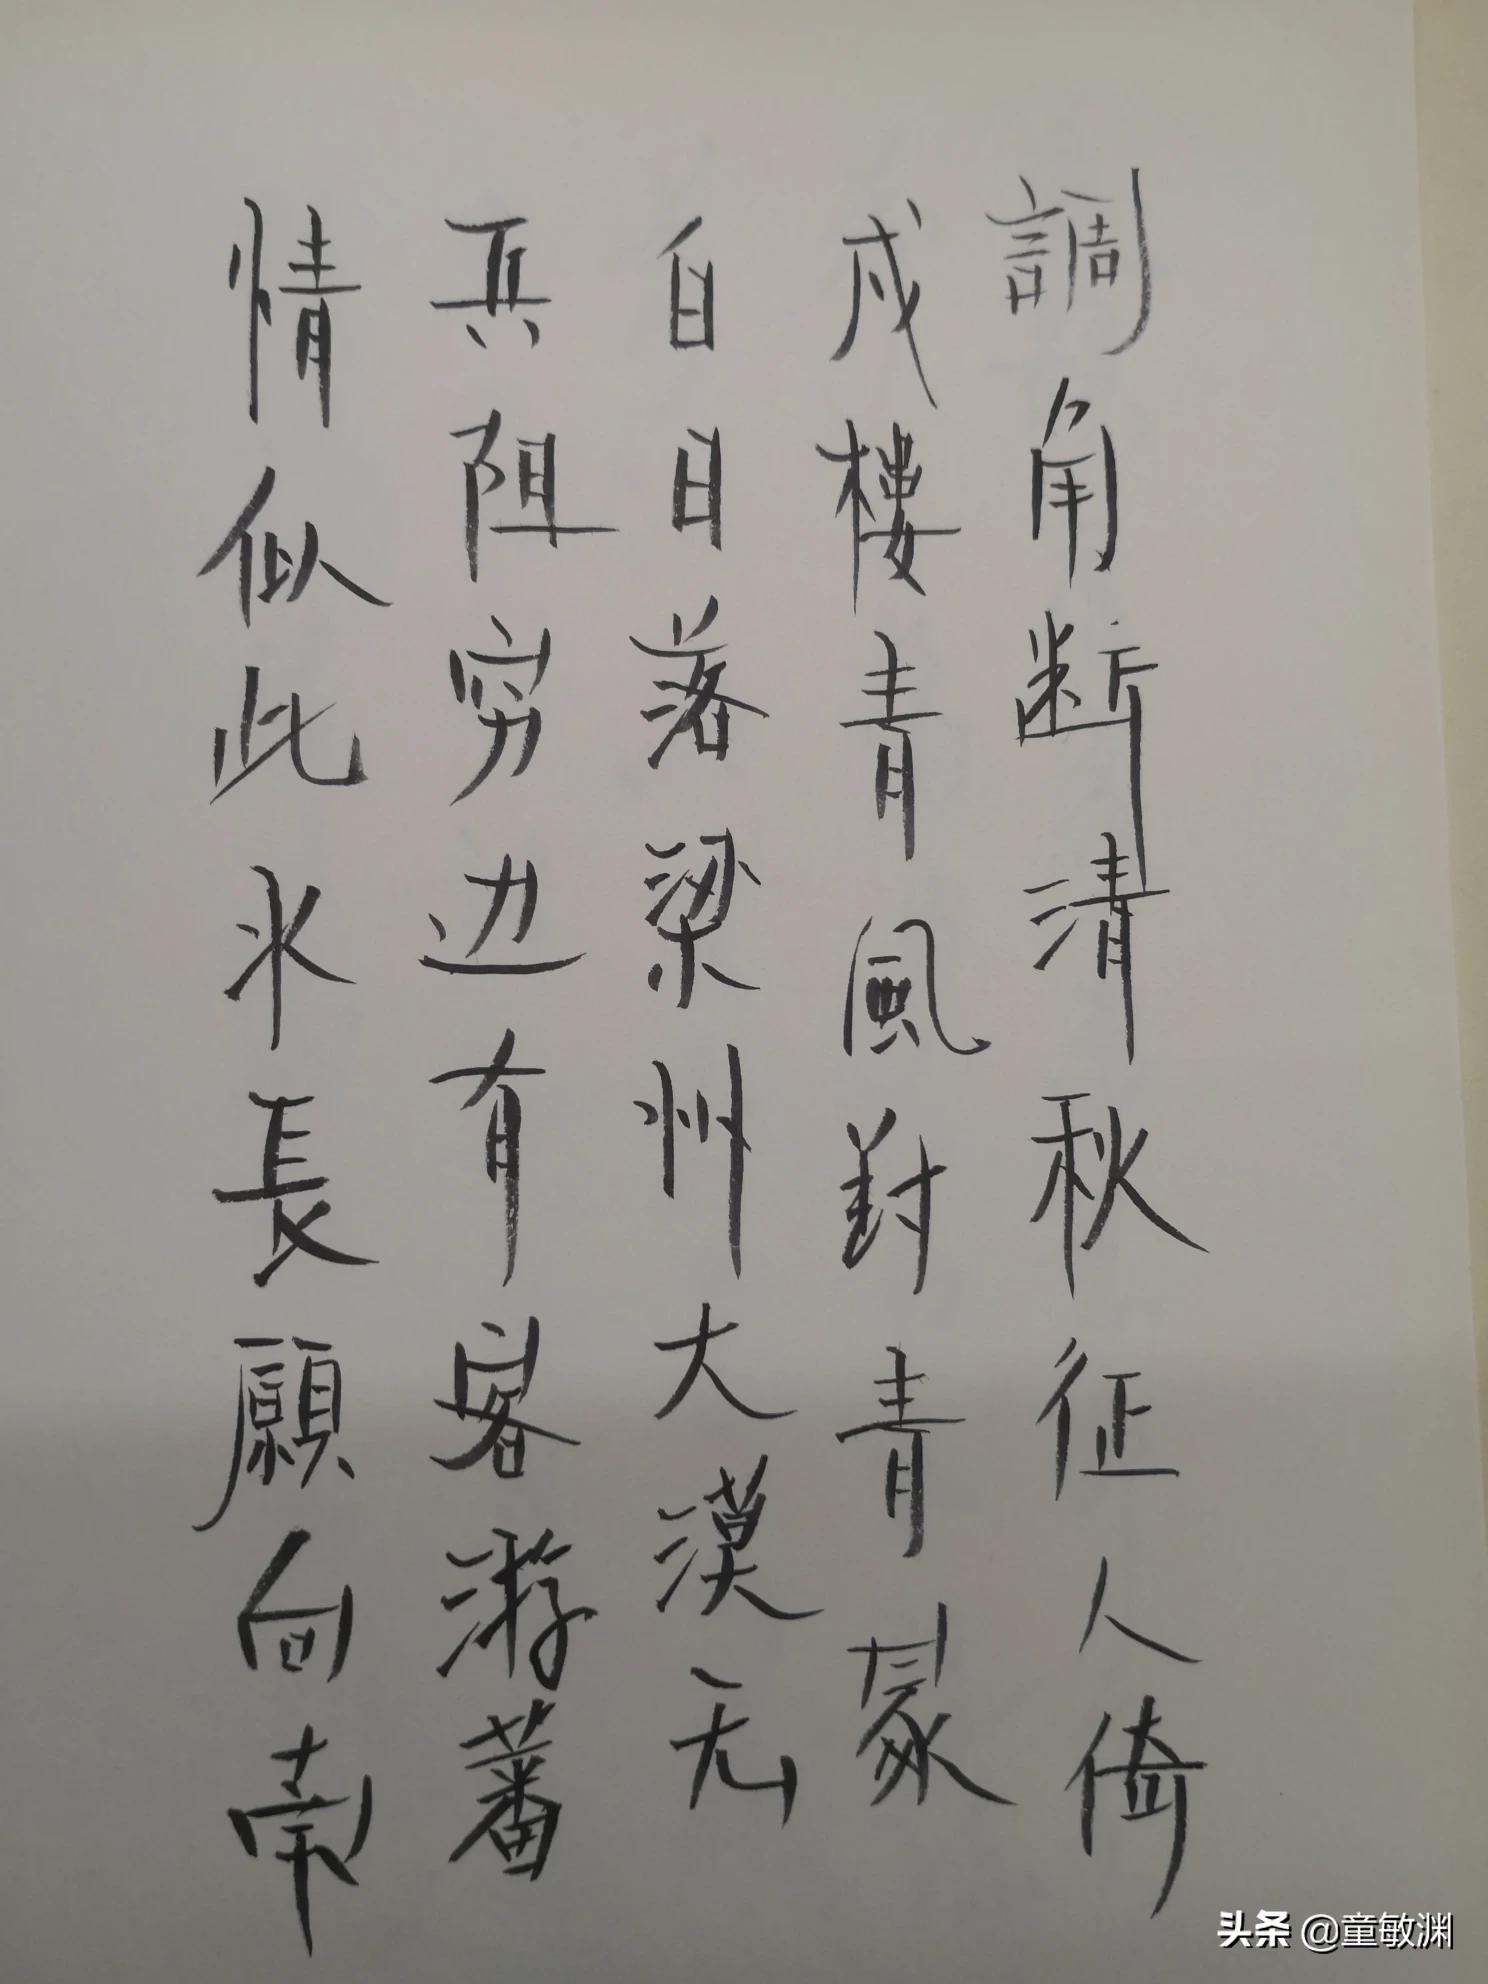 調角断清秋征人倚
戍樓青風對青冡
白日落梁州大漠无
兵阻穷边有客游蕃
情似此水長願向南
头条 @童敏渊